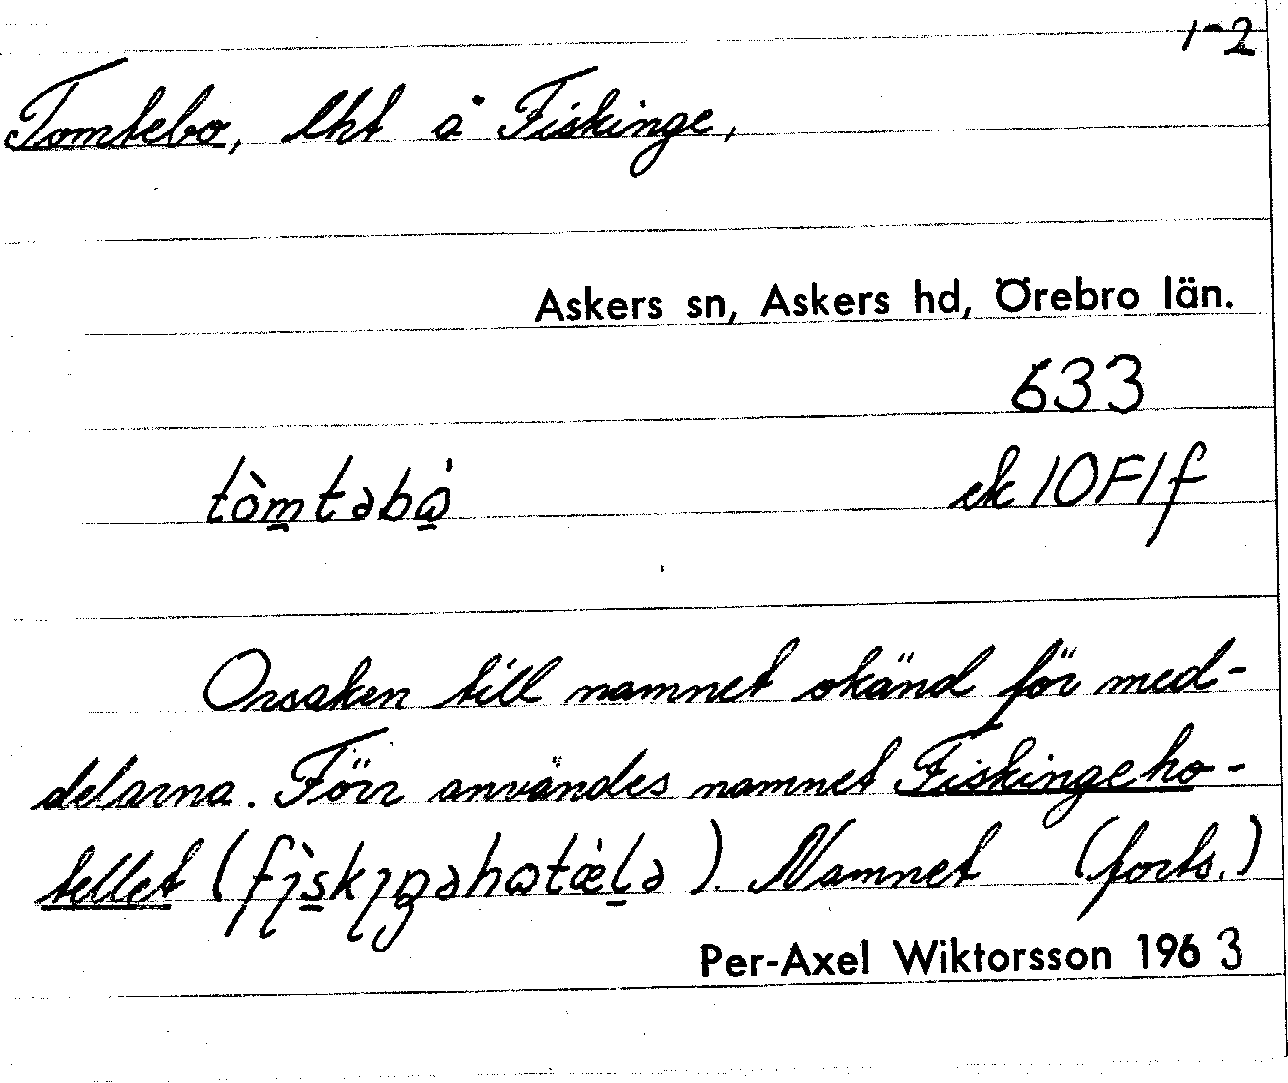 1-2
Tomtebo, lht å Fiskinge,
Askers sn, Askers hd, Örebro län.
633
tòm̲təbɷ̲̀ ek 10F1f
Orsaken till namnet okänd för med-
delarna. Förr användes namnet Fiskingeho-
tellet (fı̀s̲kıŋəhɷtæ̀l̲ə). Namnet (forts.)
Per-Axel Wiktorsson 1963